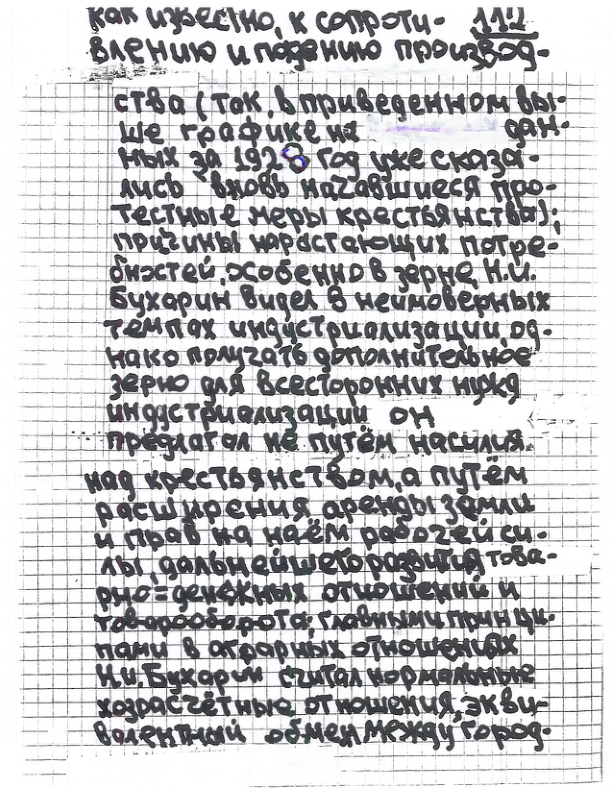 как известно, к сопроти- 112
влению и падению производ-
ства (так, в приведенном вы-
ше графике на дан-
ных за 1928 год уже сказа-
лись вновь начавшиеся про-
тестные меры крестьянства);
причины нарастающих потре-
бностей, особенно в зерне, Н.И.
Бухарин видел в неимоверных
темпах индустриализации, од-
нако получать дополнительное
зерно для всесторонних нужд
индустриализации он
предлагал не путём насилия
над крестьянством, а путём
расширения аренды земли
и прав на наём рабочей си-
лы, дальнейшего развития това-
рно-денежных отношений и
товарооборота; главными принци-
пами в аграрных отношениях
Н.И. Бухарин считал нормальные
хозрасчётные отношения, экви-
валентный обмен между город-